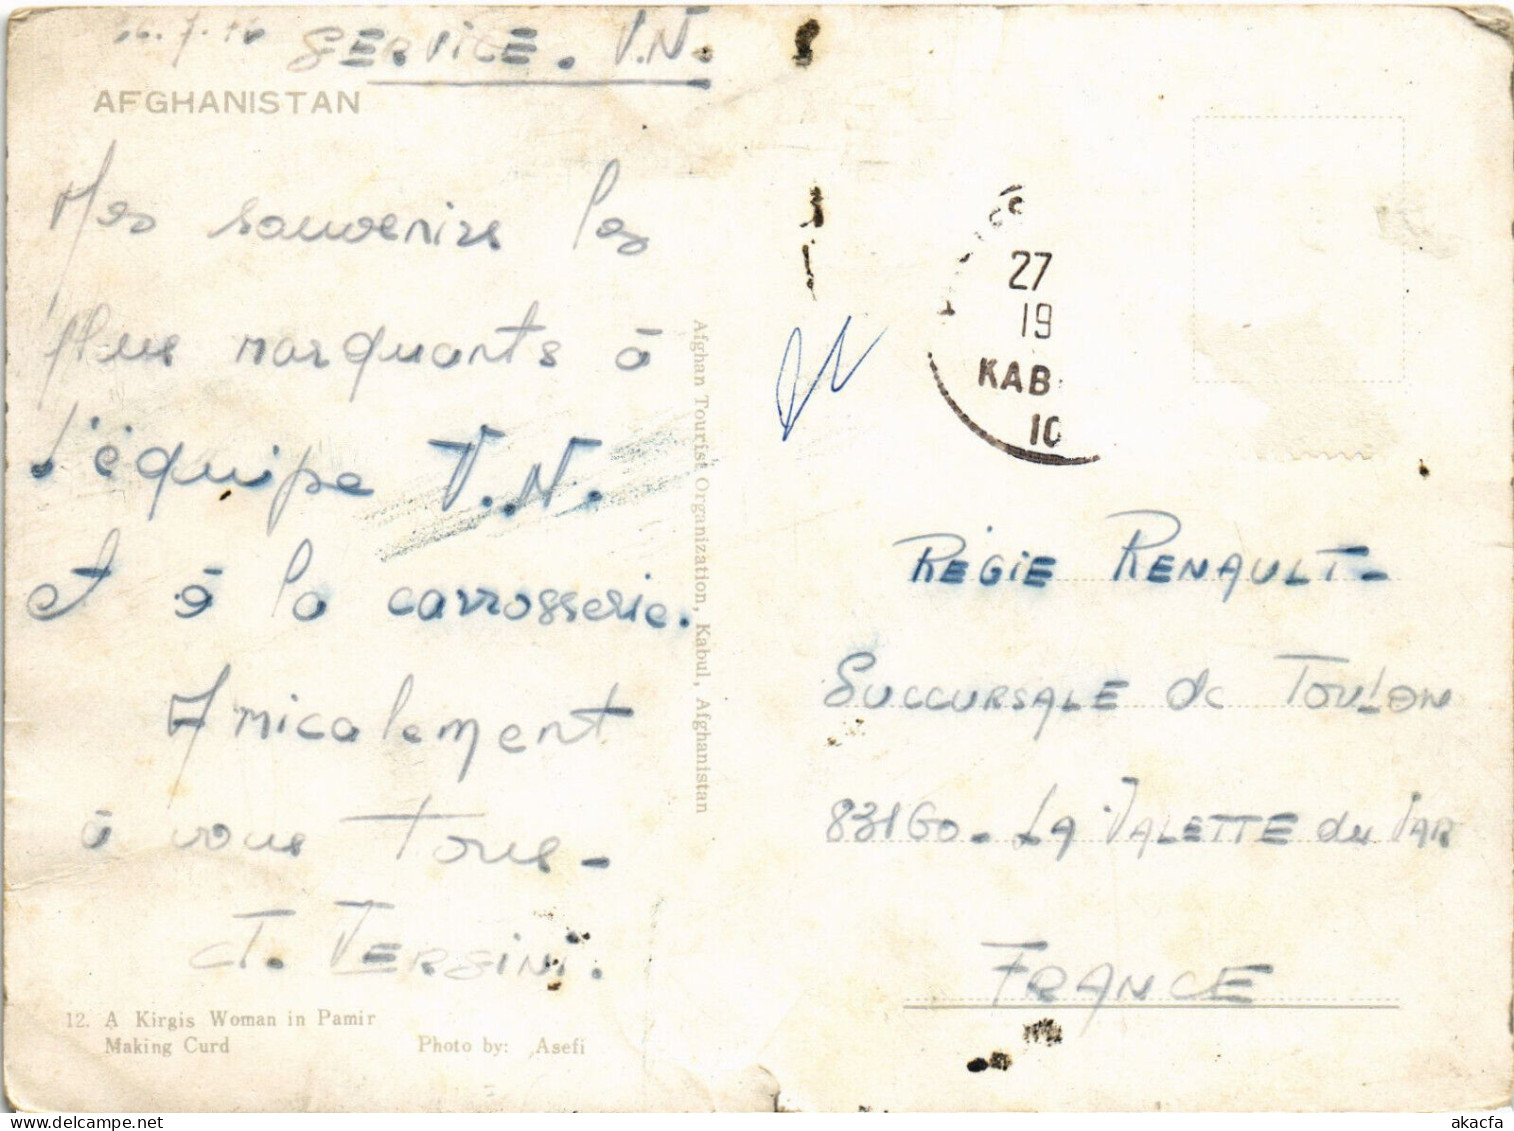 SERVICE. V.N.
AFGHANISTAN
Mes souvenirs les
plus marquants à
l'équipe V.N.
et à la carrosserie.
Amicalement
à vous tous -
J. VERSINI.
12. A Kirgis Woman in Pamir
Making Curd
Photo by: Asefi
Afghan Tourist Organization, Kabul, Afghanistan
27
19
KAB
10
RÉGIE RENAULT -
SUCCURSALE de TOULON
83160 - LA VALETTE du VAR
FRANCE
akacfa